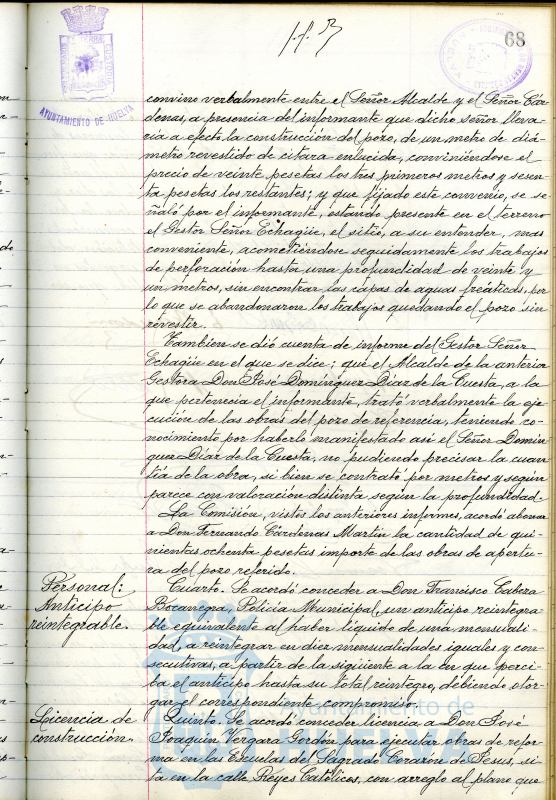 68
AYUNTAMIENTO DE HUELVA
convino verbalmente entre el Señor Alcalde y el Señor Cár-
denas, a presencia del informante que dicho señor lleva-
ria a efecto la construcción del pozo, de un metro de diá-
metro revestido de citara enlucida, conviniéndose el
precio de veinte pesetas los tres primeros metros y sesen-
ta pesetas los restantes; y que fijado este convenio, se se-
ñaló por el informante, estando presente en el terreno
el Gestor Señor Echagüe, el sitio, a su entender, mas
conveniente, acometiéndose seguidamente los trabajos
de perforación hasta una profundidad de veinte y
un metros, sin encontrar las capas de aguas freáticas, por
lo que se abandonaron los trabajos quedando el pozo sin
revestir.
Tambien se dió cuenta de informe del Gestor Señor
Echagüe en el que se dice; que el Alcalde de la anterior
Gestora Don José Domínguez Díaz de la Cuesta, a la
que pertenecia el informante, trató verbalmente la eje-
cución de las obras del pozo de referencia, teniendo co-
nocimiento por haberlo manifestado asi el Señor Domin-
guez Díaz de la Cuesta, no pudiendo precisar la cuan-
tía de la obra, si bien se contrató por metros y según
parece con valoración distinta según la profundidad.
La Comisión, vistos los anteriores informes, acordó abonar
a Don Fernando Cárdenas Martin la cantidad de qui-
nientas ochenta pesetas importe de las obras de apertu-
ra del pozo referido.
Personal:
Anticipo
reintegrable.
Cuarto. Se acordó conceder a Don Francisco Cabeza
Bocanegra, Policía Municipal, un anticipo reintegra-
ble equivalente al haber líquido de una mensuali-
dad, a reintegrar en diez mensualidades iguales y con-
secutivas, a partir de la siguiente a la en que perci-
ba el anticipo hasta su total reintegro, debiendo otor-
gar el correspondiente compromiso.
Licencia de
construcción.
Quinto. Se acordó conceder licencia a Don José
Joaquín Vergara Gordón para ejecutar obras de refor-
ma en las Escuelas del Sagrado Corazón de Jesus, si-
ta en la calle Reyes Católicos, con arreglo al plano que
Ayuntamiento de
HUELVA